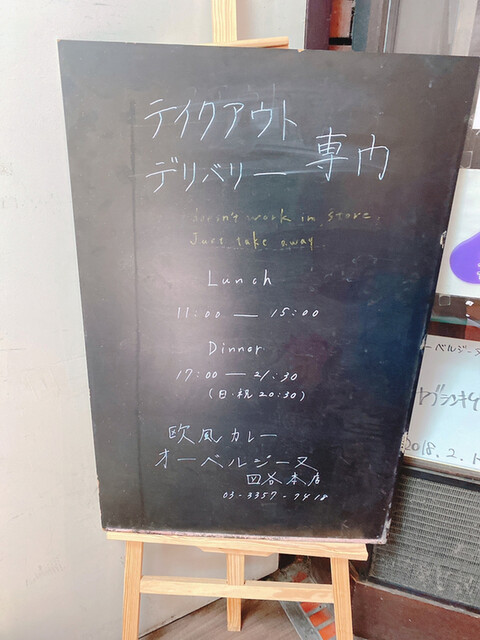 テイクアウト
デリバリー 専内
doesn't work in store
Just take away
Lunch
11:00 — 15:00
Dinner
17:00 — 21:30
(日・祝 20:30)
欧風カレー
オーベルジーヌ
四谷本店
03-3357-7418
ーベルジー
2018.2.